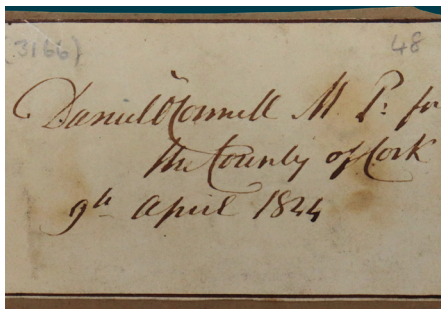 (3166) 48
Daniel O'Connell M. P: for
the County of Cork
9th April 1844